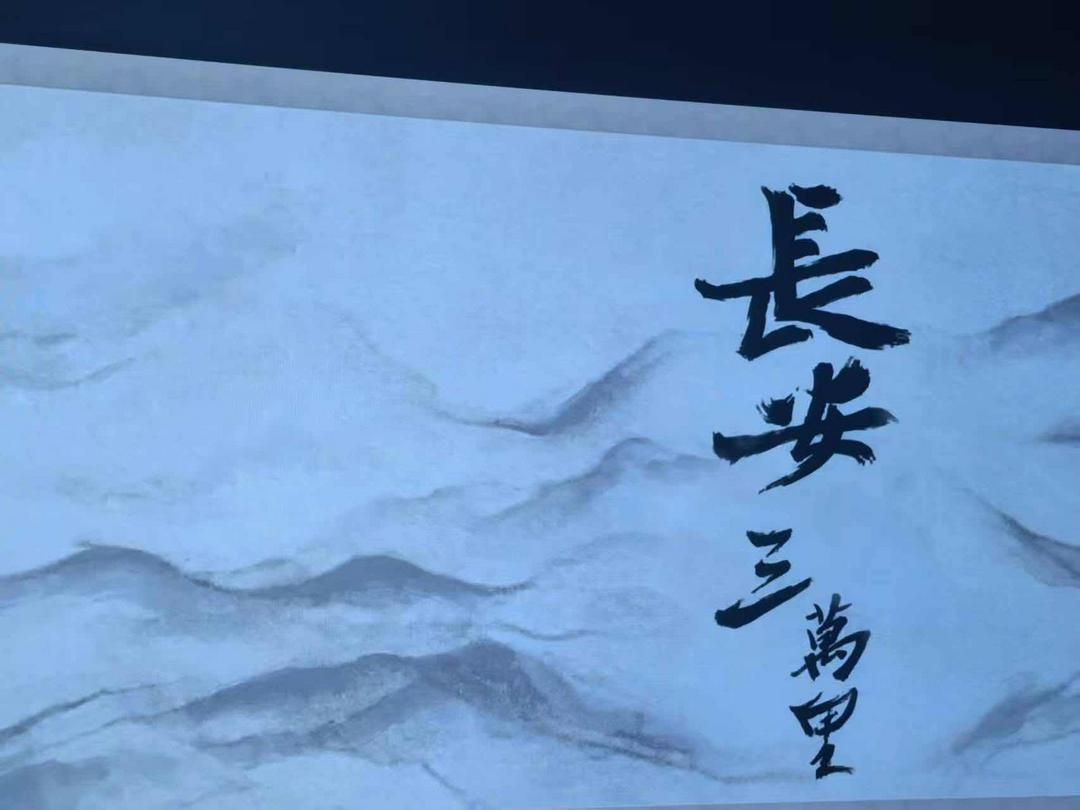 長安三萬里